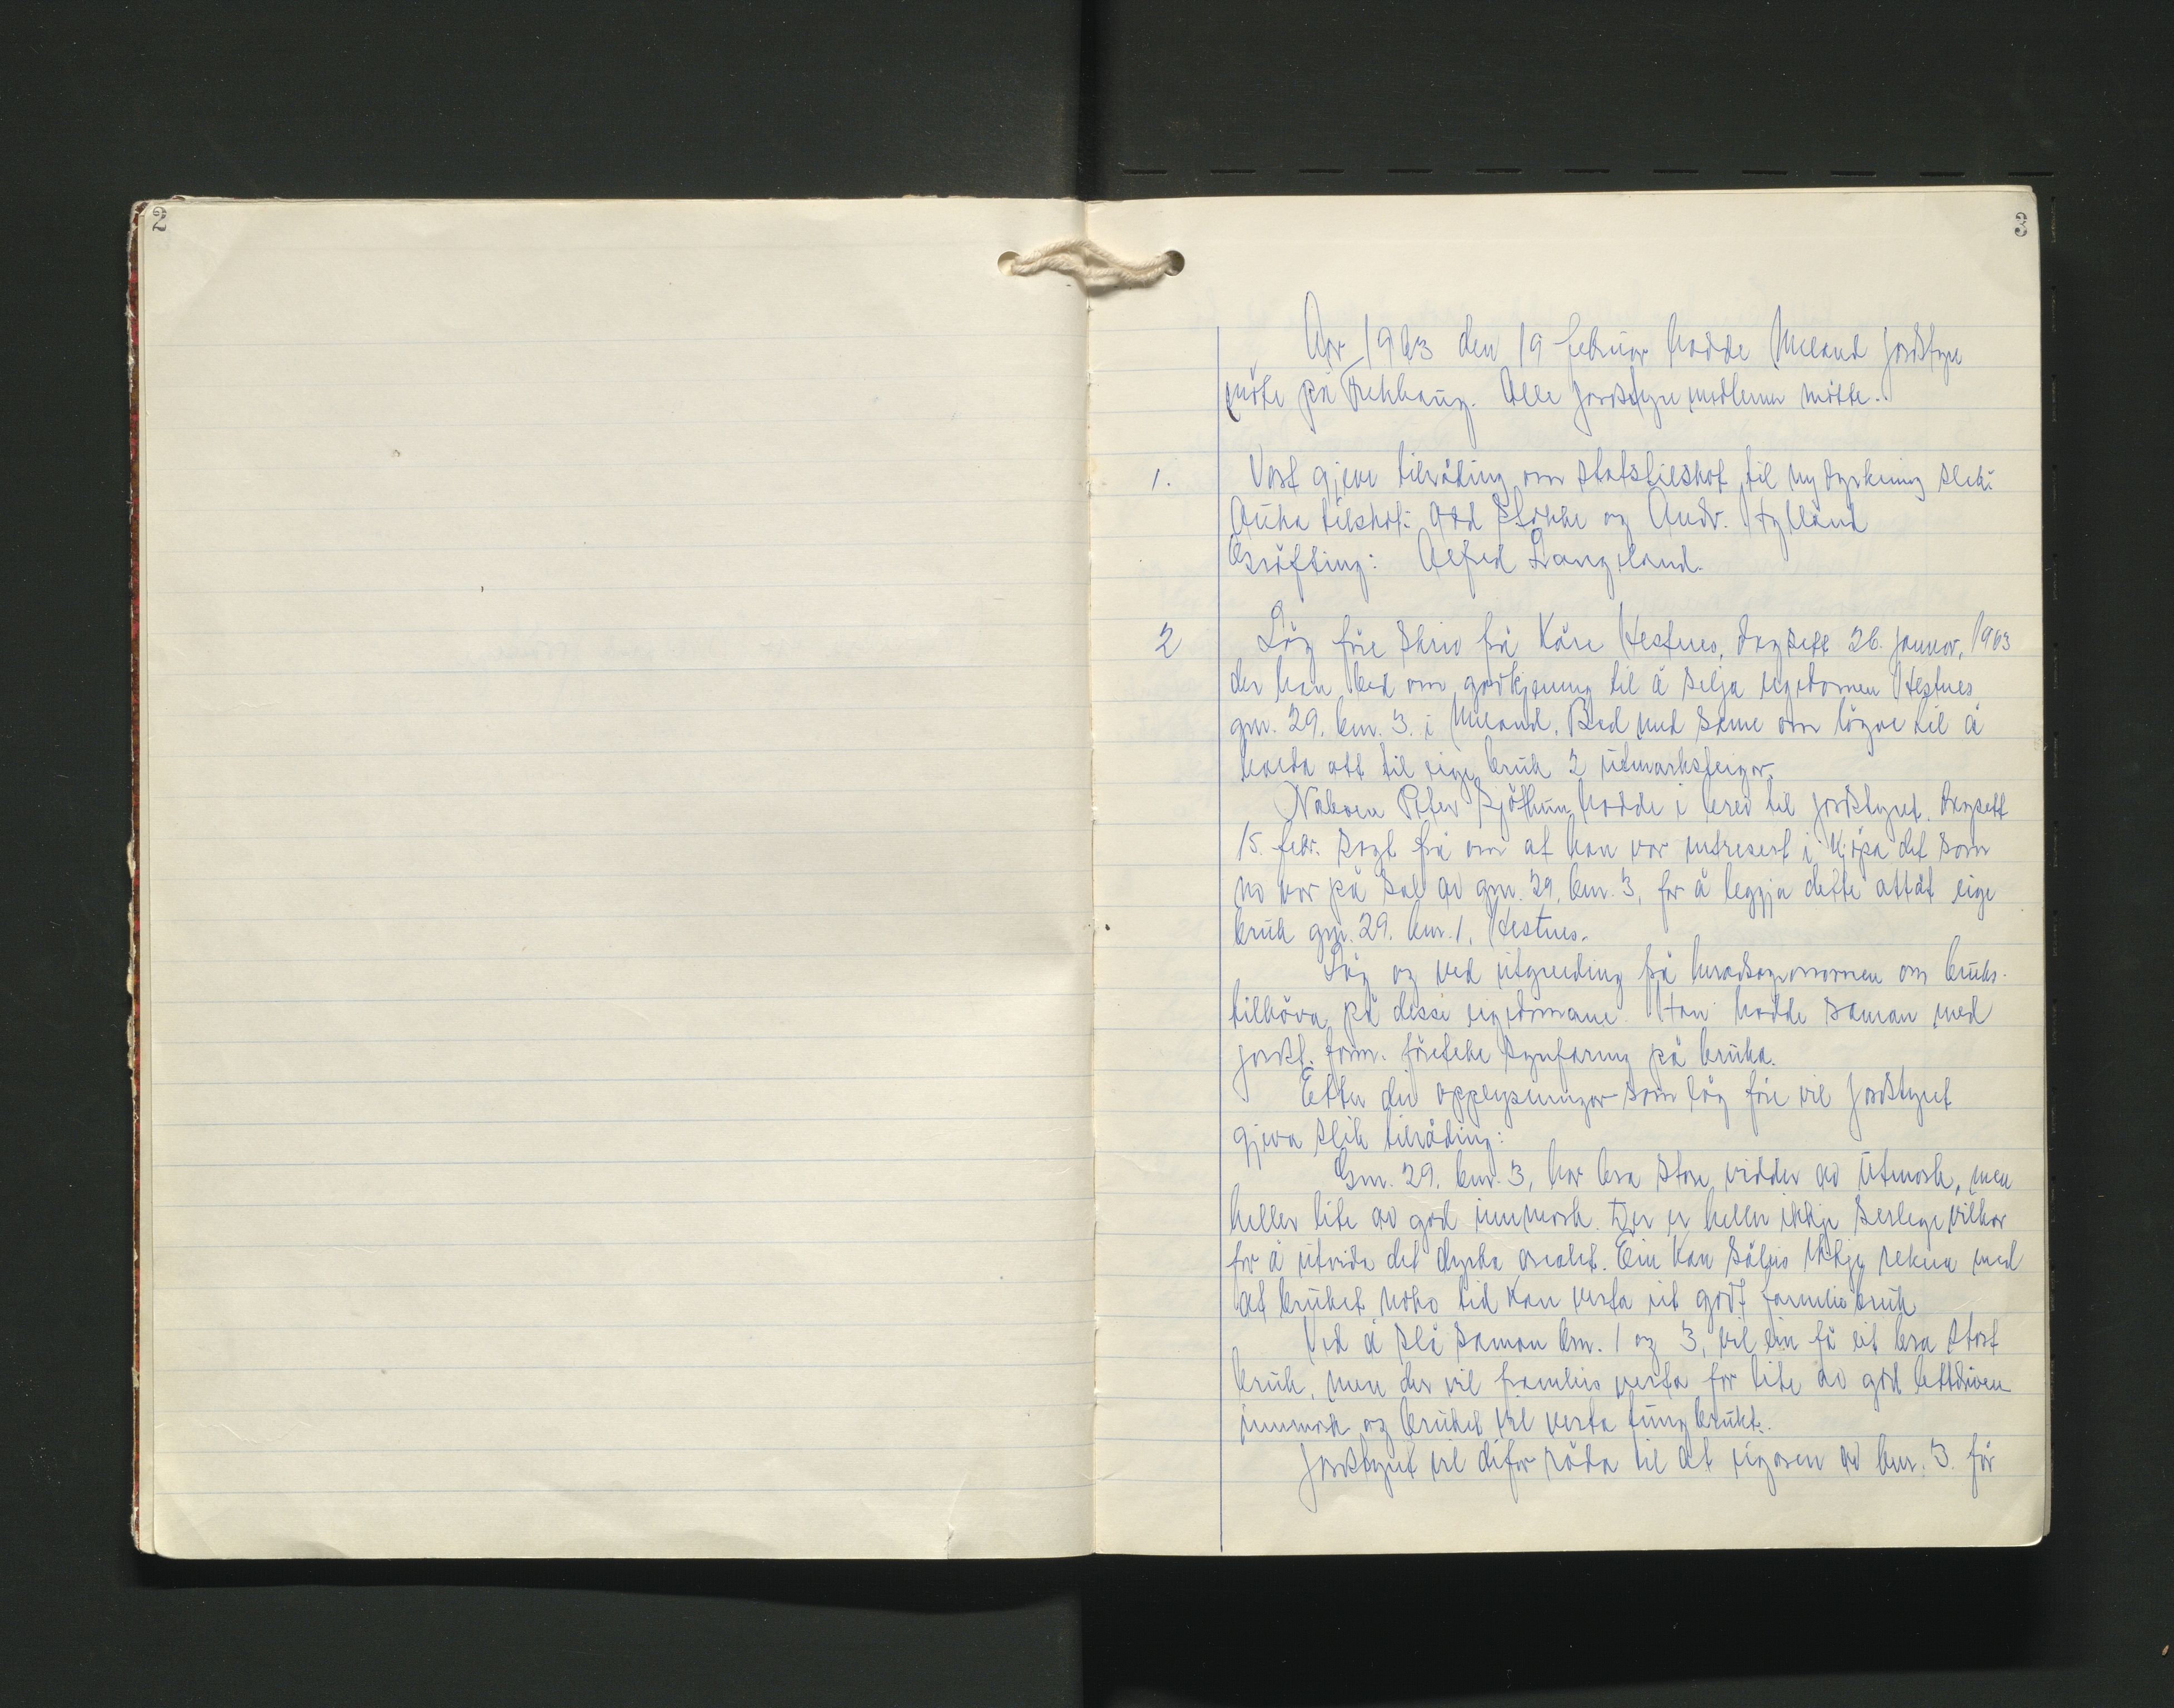 2
3
År 1963 den 19 februar hadde Meland jordstyre
møte på Frekhaug. Alle jordstyremedlemer møtte.
1. Vart gjeve tilråding om statstilskot til nydyrking slik:
Auka tilskot: Odd Stokke og Andr. Hylland
Grøfting: Alfred Langeland.
2 Låg føre skriv frå Kåre Hestnes, dagsett 26. januar, 1963
der han bed om godkjenning til å selja eigedomen Hestnes
gnr. 29. bnr. 3. i Meland. Bed med same om løyve til å
halda att til eige bruk 2 utmarksteigar.
Naboen Peter Kjøthun hadde i brev til jordstyret, dagsett
15. febr. sagt frå om at han var intresert i kjøpa det som
no var på sal av gnr. 29, bnr. 3, for å leggja dette attåt eige
bruk gnr. 29. bnr. 1, Hestnes.
Låg og ved utgreiding frå heradsagronomen om bruks-
tilhøva på dessi eigedomane. Han hadde saman med
jordst. form. føreteke synfaring på bruka.
Etter dei opplysningar som låg føre vil jordstyret
gjeva slik tilråding:
Gnr. 29. bnr. 3, har bra store vidder av utmark, men
heller lite av god innmark. Der er heller ikkje serlege vilkor
for å utvida det dyrka arealet. Ein kan såleis ikkje rekna med
at bruket noko tid kan verta eit godt familiebruk
Ved å slå saman bnr. 1 og 3, vil ein få eit bra stort
bruk, men der vil framleis verta for lite av god lettdriven
innmark og bruket vil verta tungbrukt.
Jordstyret vil difor råda til at eigaren av bnr. 3. får